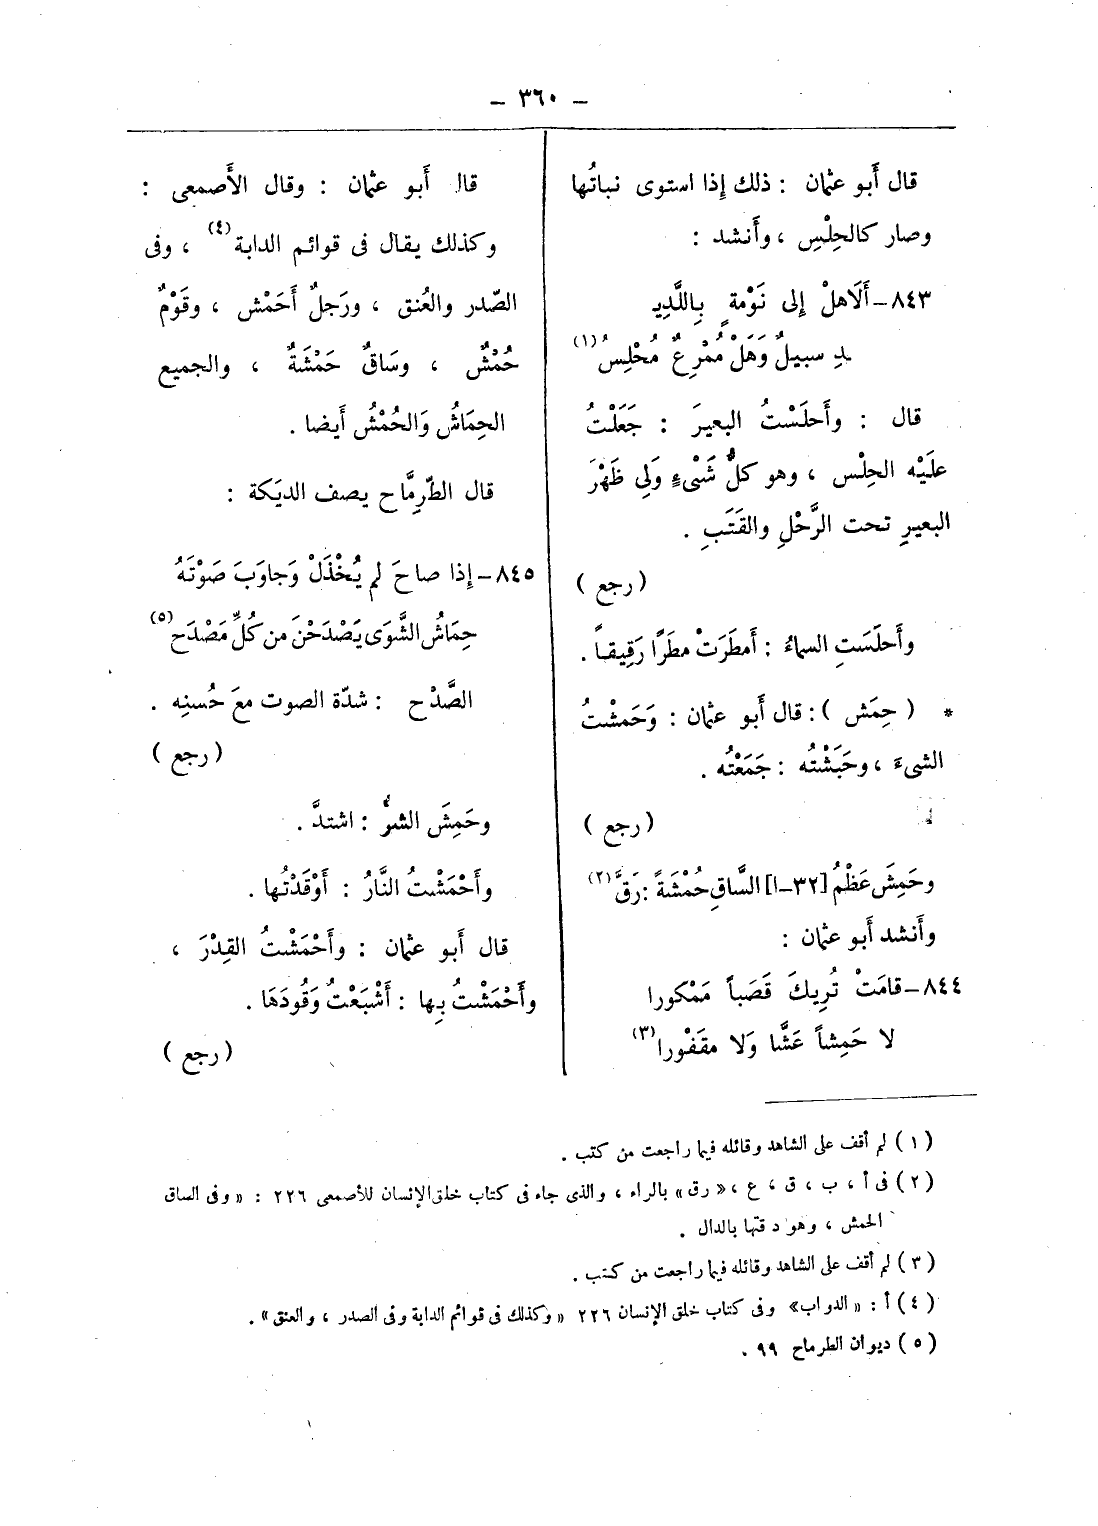 – ٣٦٠ –
قال أَبو عثمان : ذلك إِذا استوى نباتُها
وصار كالحِلْسِ ، وأَنشد :
٨٤٣–أَلَاهلْ إلى نَوْمةٍ بِاللَّدِيـ
ـدِ سبيلٌ وَهَلْ مُمْرِعٌ مُحْلِسُ(١)
قال : وأَحلَسْتُ البعيرَ : جَعَلْتُ
علَيْه الحِلْس ، وهو كلُّ شَىْءٍ وَلِىَ ظَهْرَ
البعيرِ تحت الرَّحْلِ والقَتَبِ .
( رجع )
وأَحلَسَتِ السماءُ : أَمطَرَتْ مطَرًا رَقِيقاً .
* ( حِمَش ) : قال أَبو عثمان : وَحَمشْتُ
الشىءَ ، وحَبَشْتُه : جَمَعْتُه .
( رجع )
وحَمِشَ عَظْمُ [٣٢–ا] السَّاقِ حُمْشَةً : رَقَّ(٢)
وأَنشد أَبو عثمان :
٨٤٤–قامَتْ تُرِيكَ قَصَباً مَمْكورا
لا حَمِشاً عَشَّا وَلا مقَفْورا(٣)
قال أَبو عثمان : وقال الأَصمعى :
وكذلك يقال فى قوائم الدابة(٤) ، وفى
الصّدر والعُنق ، ورَجلٌ أَحَمْش ، وقَوْمٌ
حُمْشٌ ، وسَاقٌ حَمْشَةٌ ، والجميع
الحِمَاشُ وَالحُمْشُ أَيضا .
قال الطّرِمَّاح يصف الديَكة :
٨٤٥–إذا صاحَ لم يُخْذَلْ وَجاوَبَ صَوْتَهُ
حِمَاشُ الشَّوَى يَصْدَحْنَ من كُلِّ مَصْدَح(٥)
الصَّدْح : شدّة الصوت معَ حُسنِه .
( رجع )
وحَمِشَ الشرُّ : اشتدَّ .
وأَحْمَشْتُ النَّارُ : أَوْقَدْتُها .
قال أَبو عثمان : وأَحْمَشْتُ القِدْرَ ،
وأَحْمَشْتُ بِها : أَشْبَعْتُ وَقُودَهَا .
( رجع )
( ١ ) لم أقف على الشاهد وقائله فيما راجعت من كتب .
( ٢ ) فى أ ، ب ، ق ، ع ، « رق » بالراء ، والذى جاء فى كتاب خلق الإنسان للأصمعى ٢٢٦ : « وفى الساق
الحمش ، وهو دقتها بالدال .
( ٣ ) لم أقف على الشاهد وقائله فيما راجعت من كتب .
( ٤ ) أ : « الدواب » وفى كتاب خلق الإنسان ٢٢٦ « وكذلك فى قوائم الدابة وفى الصدر ، والعنق » .
( ٥ ) ديوان الطرماح ٩٩ .